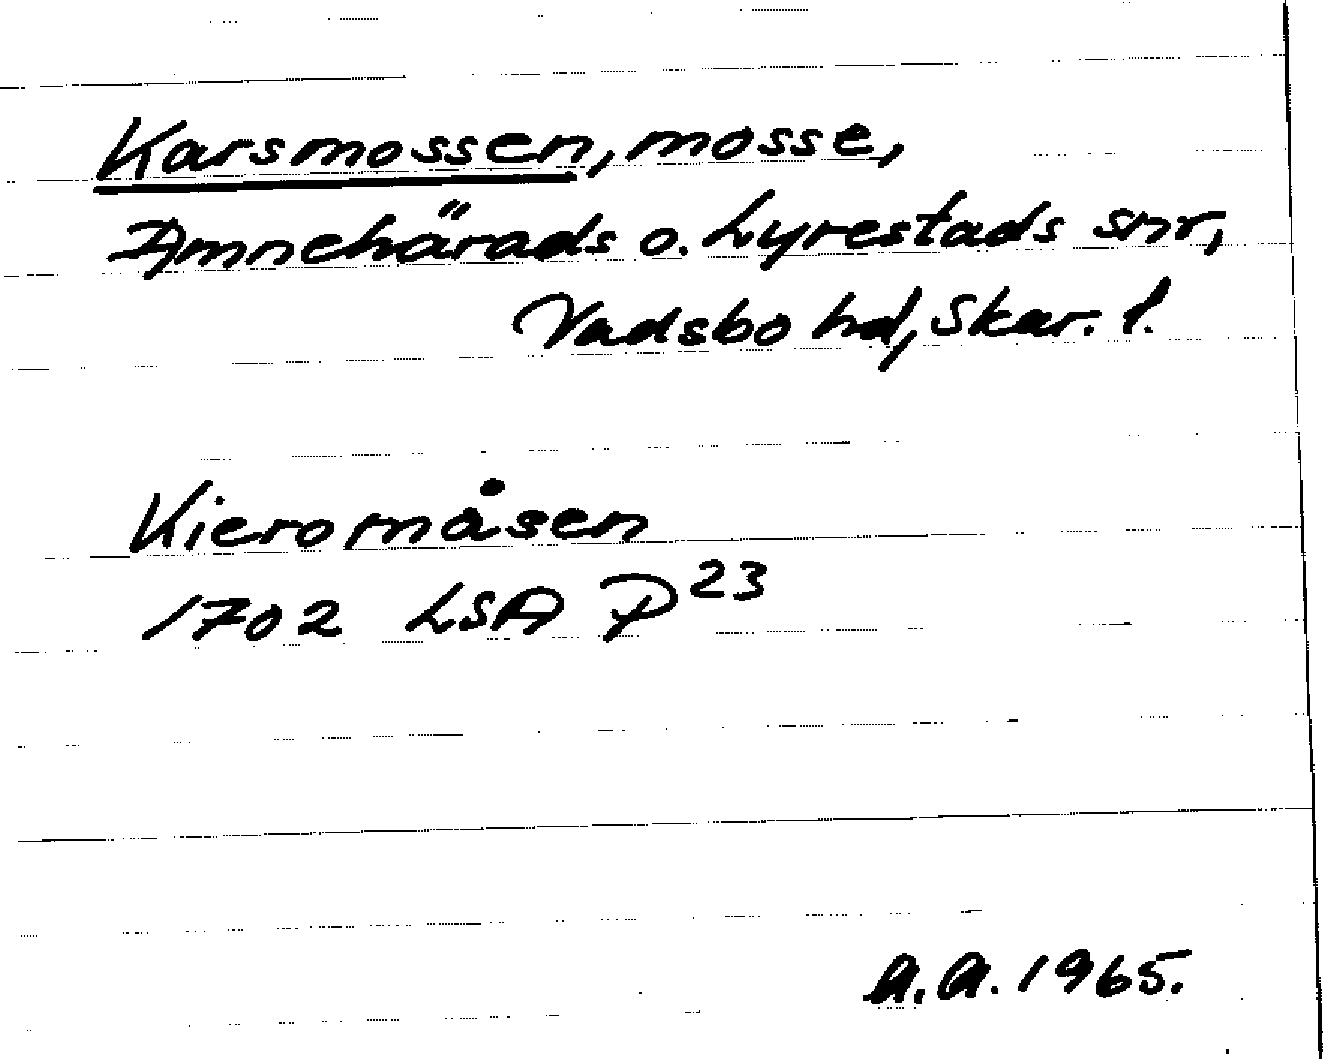 Karsmossen, mosse,
Amnehärads o. Lyrestads snr,
Vadsbo hd, Skar. l.
Kieromåsen
1702 LSA P 23
A.A. 1965.